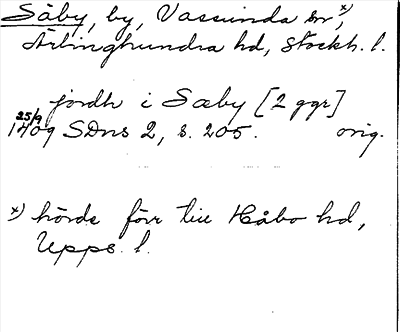 Säby, by, Vassunda sn,x)
Ärlinghundra hd, Stockh. l.
jordh i Sæby [2 ggr]
25/9
1409 SDns 2, s. 205. orig.
x) hörde förr till Håbo hd,
Upps. l.